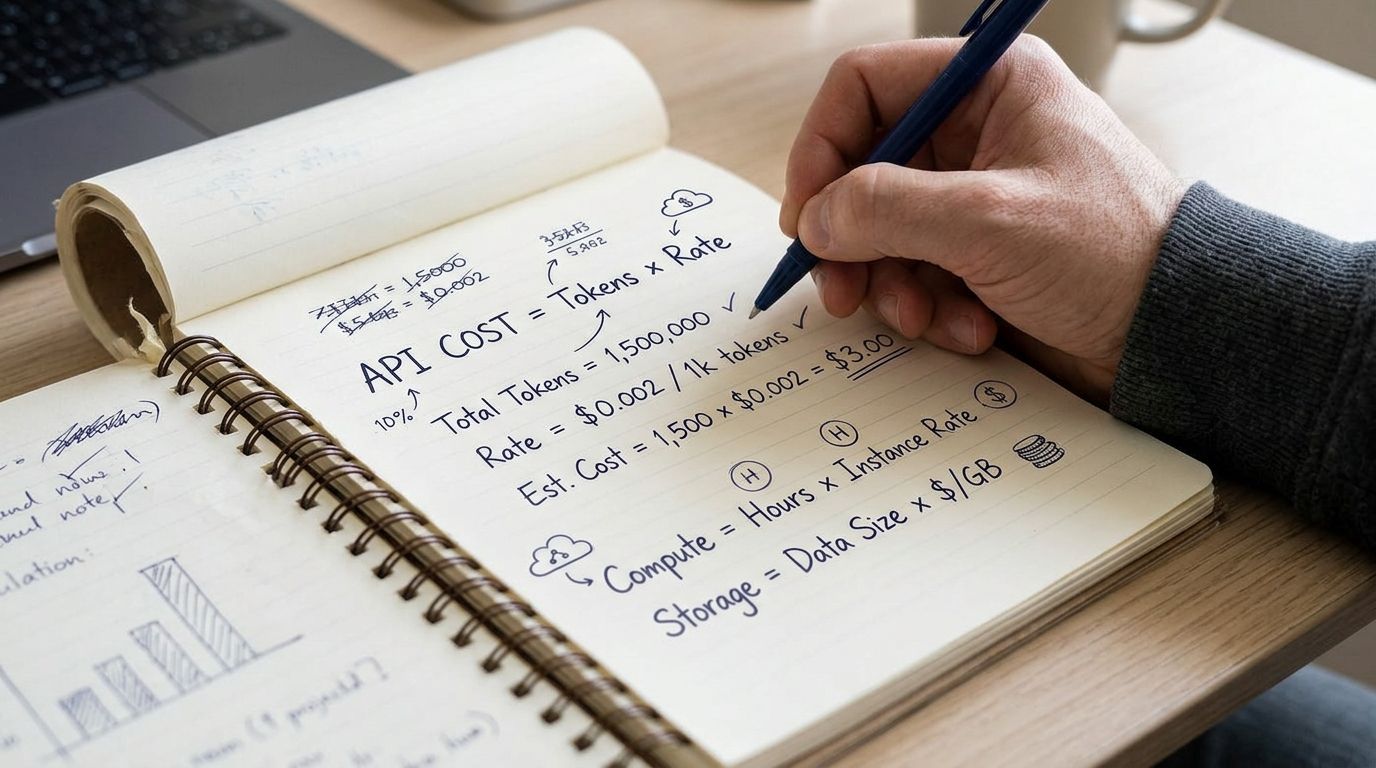 = 1,5000
= $0.002
3.5k
5.982
API COST = Tokens x Rate
$
10%
Total Tokens = 1,500,000 ✓
Rate = $0.002 / 1k tokens ✓
Est. Cost = 1,500 x $0.002 = $3.00
H
H
$
Compute = Hours x Instance Rate
Storage = Data Size x $/GB
note
ulation: